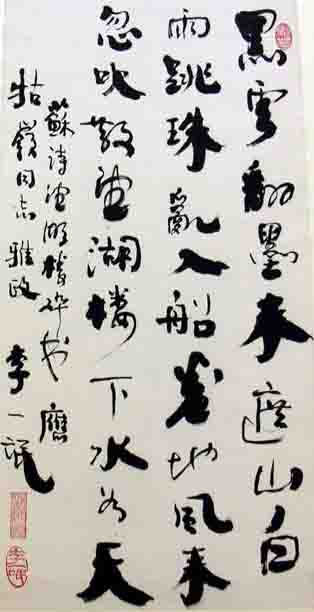 黑雲翻墨未遮山白
雨跳珠亂入船卷地風来
忽吹散望湖樓下水如天
蘇詩望湖樓醉書 應
牯嶺同志雅政 李一氓